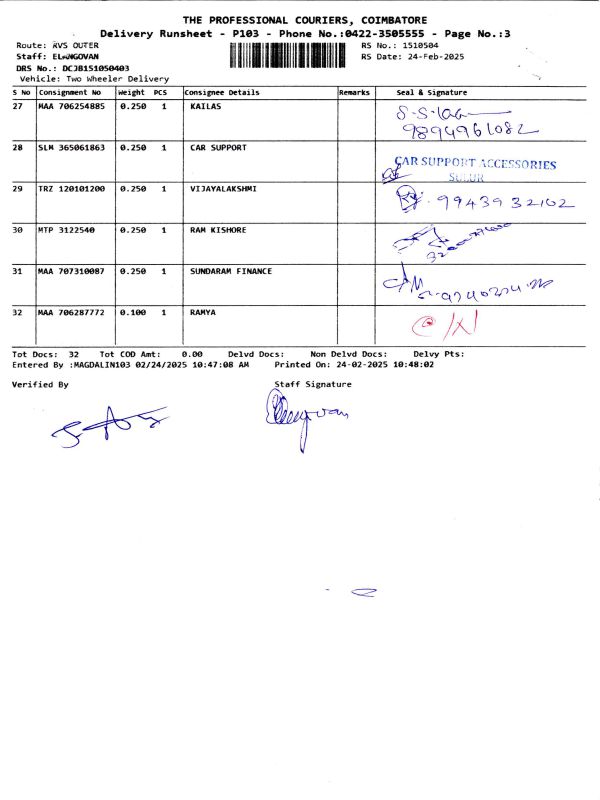 THE PROFESSIONAL COURIERS, COIMBATORE
Delivery Runsheet - P103 - Phone No.:0422-3505555 - Page No.:3
Route: RVS OUTER RS No.: 1510504
Staff: ELANGOVAN RS Date: 24-Feb-2025
DRS No.: DCJB151050403
Vehicle: Two Wheeler Delivery
S No Consignment No Weight PCS Consignee Details Remarks Seal & Signature
27 MAA 706254885 0.250 1 KAILAS
9894961082
28 SLM 365061863 0.250 1 CAR SUPPORT CAR SUPPORT ACCESSORIES
SULUR
29 TRZ 120101200 0.250 1 VIJAYALAKSHMI 9943932102
30 MTP 3122540 0.250 1 RAM KISHORE
31 MAA 707310087 0.250 1 SUNDARAM FINANCE
32 MAA 706287772 0.100 1 RAMYA
Tot Docs: 32 Tot COD Amt: 0.00 Delvd Docs: Non Delvd Docs: Delvy Pts:
Entered By :MAGDALIN103 02/24/2025 10:47:08 AM Printed On: 24-02-2025 10:48:02
Verified By Staff Signature